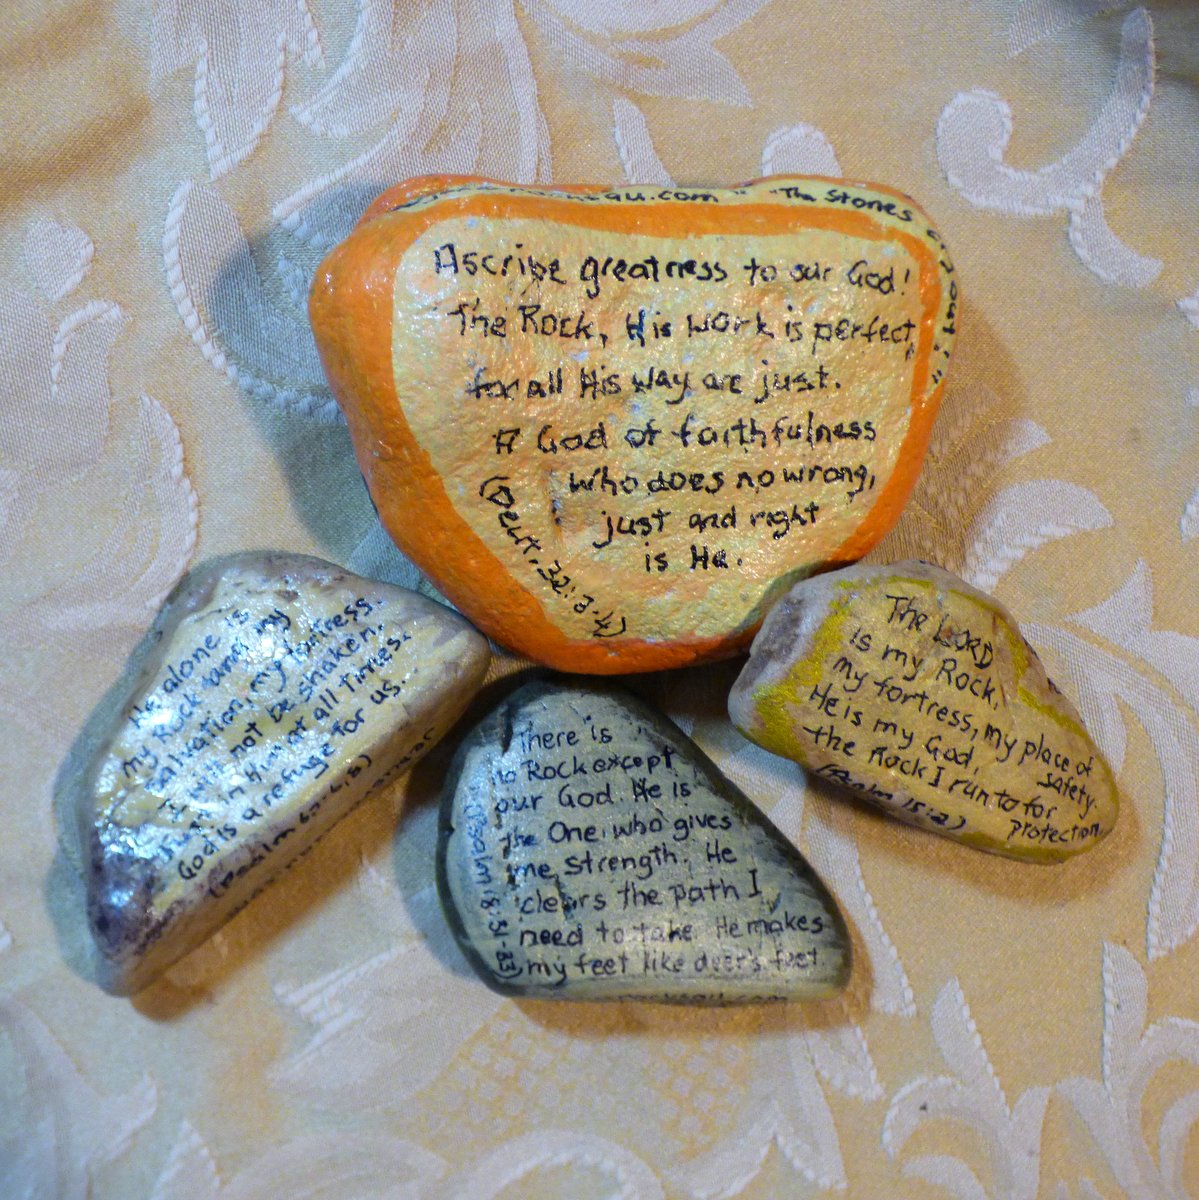 "The Stones
Ascribe greatness to our God!
The Rock, His work is perfect,
for all His way are just.
A God of faithfulness
who does no wrong,
just and right
is He.
(Deut. 32:3-4)
He alone is
my Rock and my
salvation, my fortress.
I will not be shaken.
Trust in Him at all times.
God is a refuge for us.
(Psalm
There is
no Rock except
our God. He is
the One who gives
me strength. He
clears the path I
need to take. He makes
my feet like deer's feet.
(Psalm 18:31-33)
The LORD
is my Rock,
my fortress, my place of
safety.
He is my God,
the Rock I run to for
protection.
(Psalm 18:2)